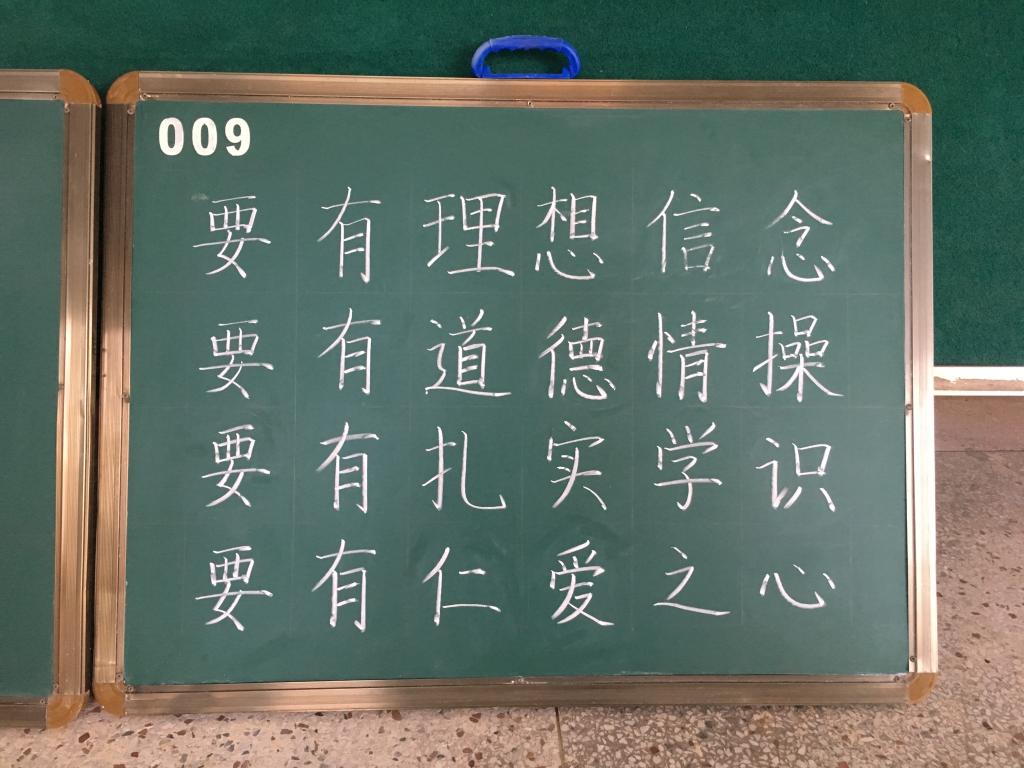 009
要有理想信念
要有道德情操
要有扎实学识
要有仁爱之心